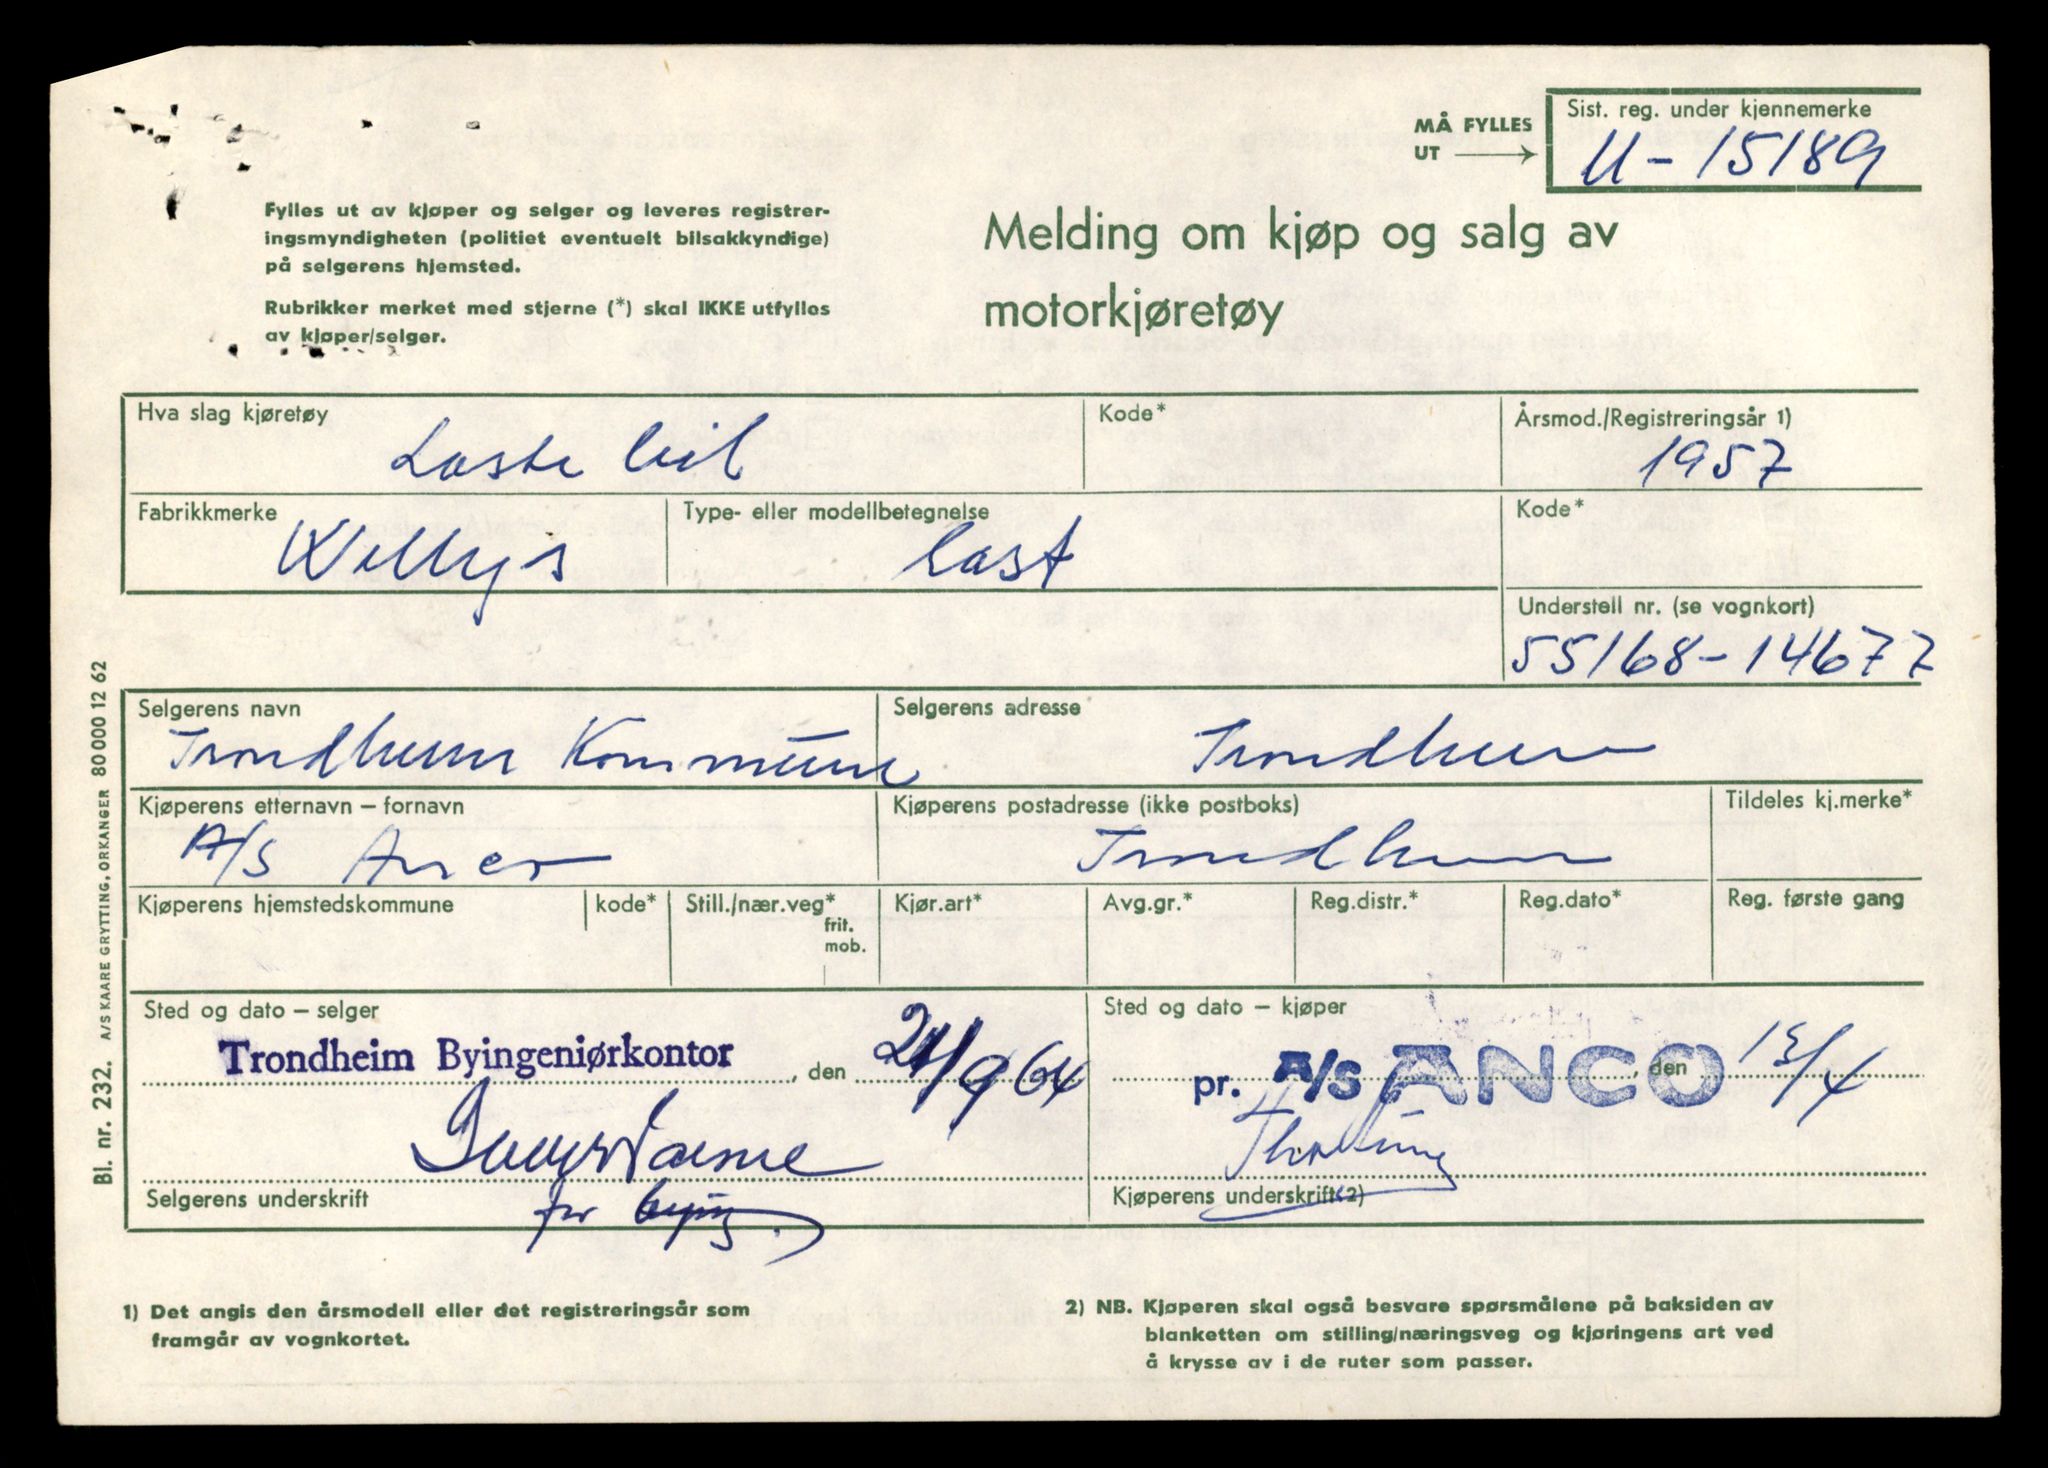 MÅ FYLLES
UT
Sist. reg. under kjennemerke
U-15189
Fylles ut av kjøper og selger og leveres registrer-
ingsmyndigheten (politiet eventuelt bilsakkyndige)
på selgerens hjemsted.
Rubrikker merket med stjerne (*) skal IKKE utfylles
av kjøper/selger.
Melding om kjøp og salg av
motorkjøretøy
Hva slag kjøretøy
Laste bil
Kode*
Årsmod./Registreringsår 1)
1957
Fabrikkmerke
Willys
Type- eller modellbetegnelse
last
Kode*
Understell nr. (se vognkort)
55168-14677
Selgerens navn
Trondheim Kommune
Selgerens adresse
Trondheim
Kjøperens etternavn – fornavn
A/S Anco
Kjøperens postadresse (ikke postboks)
Trondheim
Tildeles kj.merke*
Kjøperens hjemstedskommune
kode*
Still./nær.veg*
frit.
mob.
Kjør.art*
Avg.gr.*
Reg.distr.*
Reg.dato*
Reg. første gang
Sted og dato – selger
Trondheim Byingeniørkontor, den 21/9 64
Sted og dato – kjøper
pr. A/S ANCO, den
for bying.
Selgerens underskrift
Kjøperens underskrift 2)
1) Det angis den årsmodell eller det registreringsår som
framgår av vognkortet.
2) NB. Kjøperen skal også besvare spørsmålene på baksiden av
blanketten om stilling/næringsveg og kjøringens art ved
å krysse av i de ruter som passer.
Bl. nr. 232. A/S KAARE GRYTTING, ORKANGER 80000 12 62